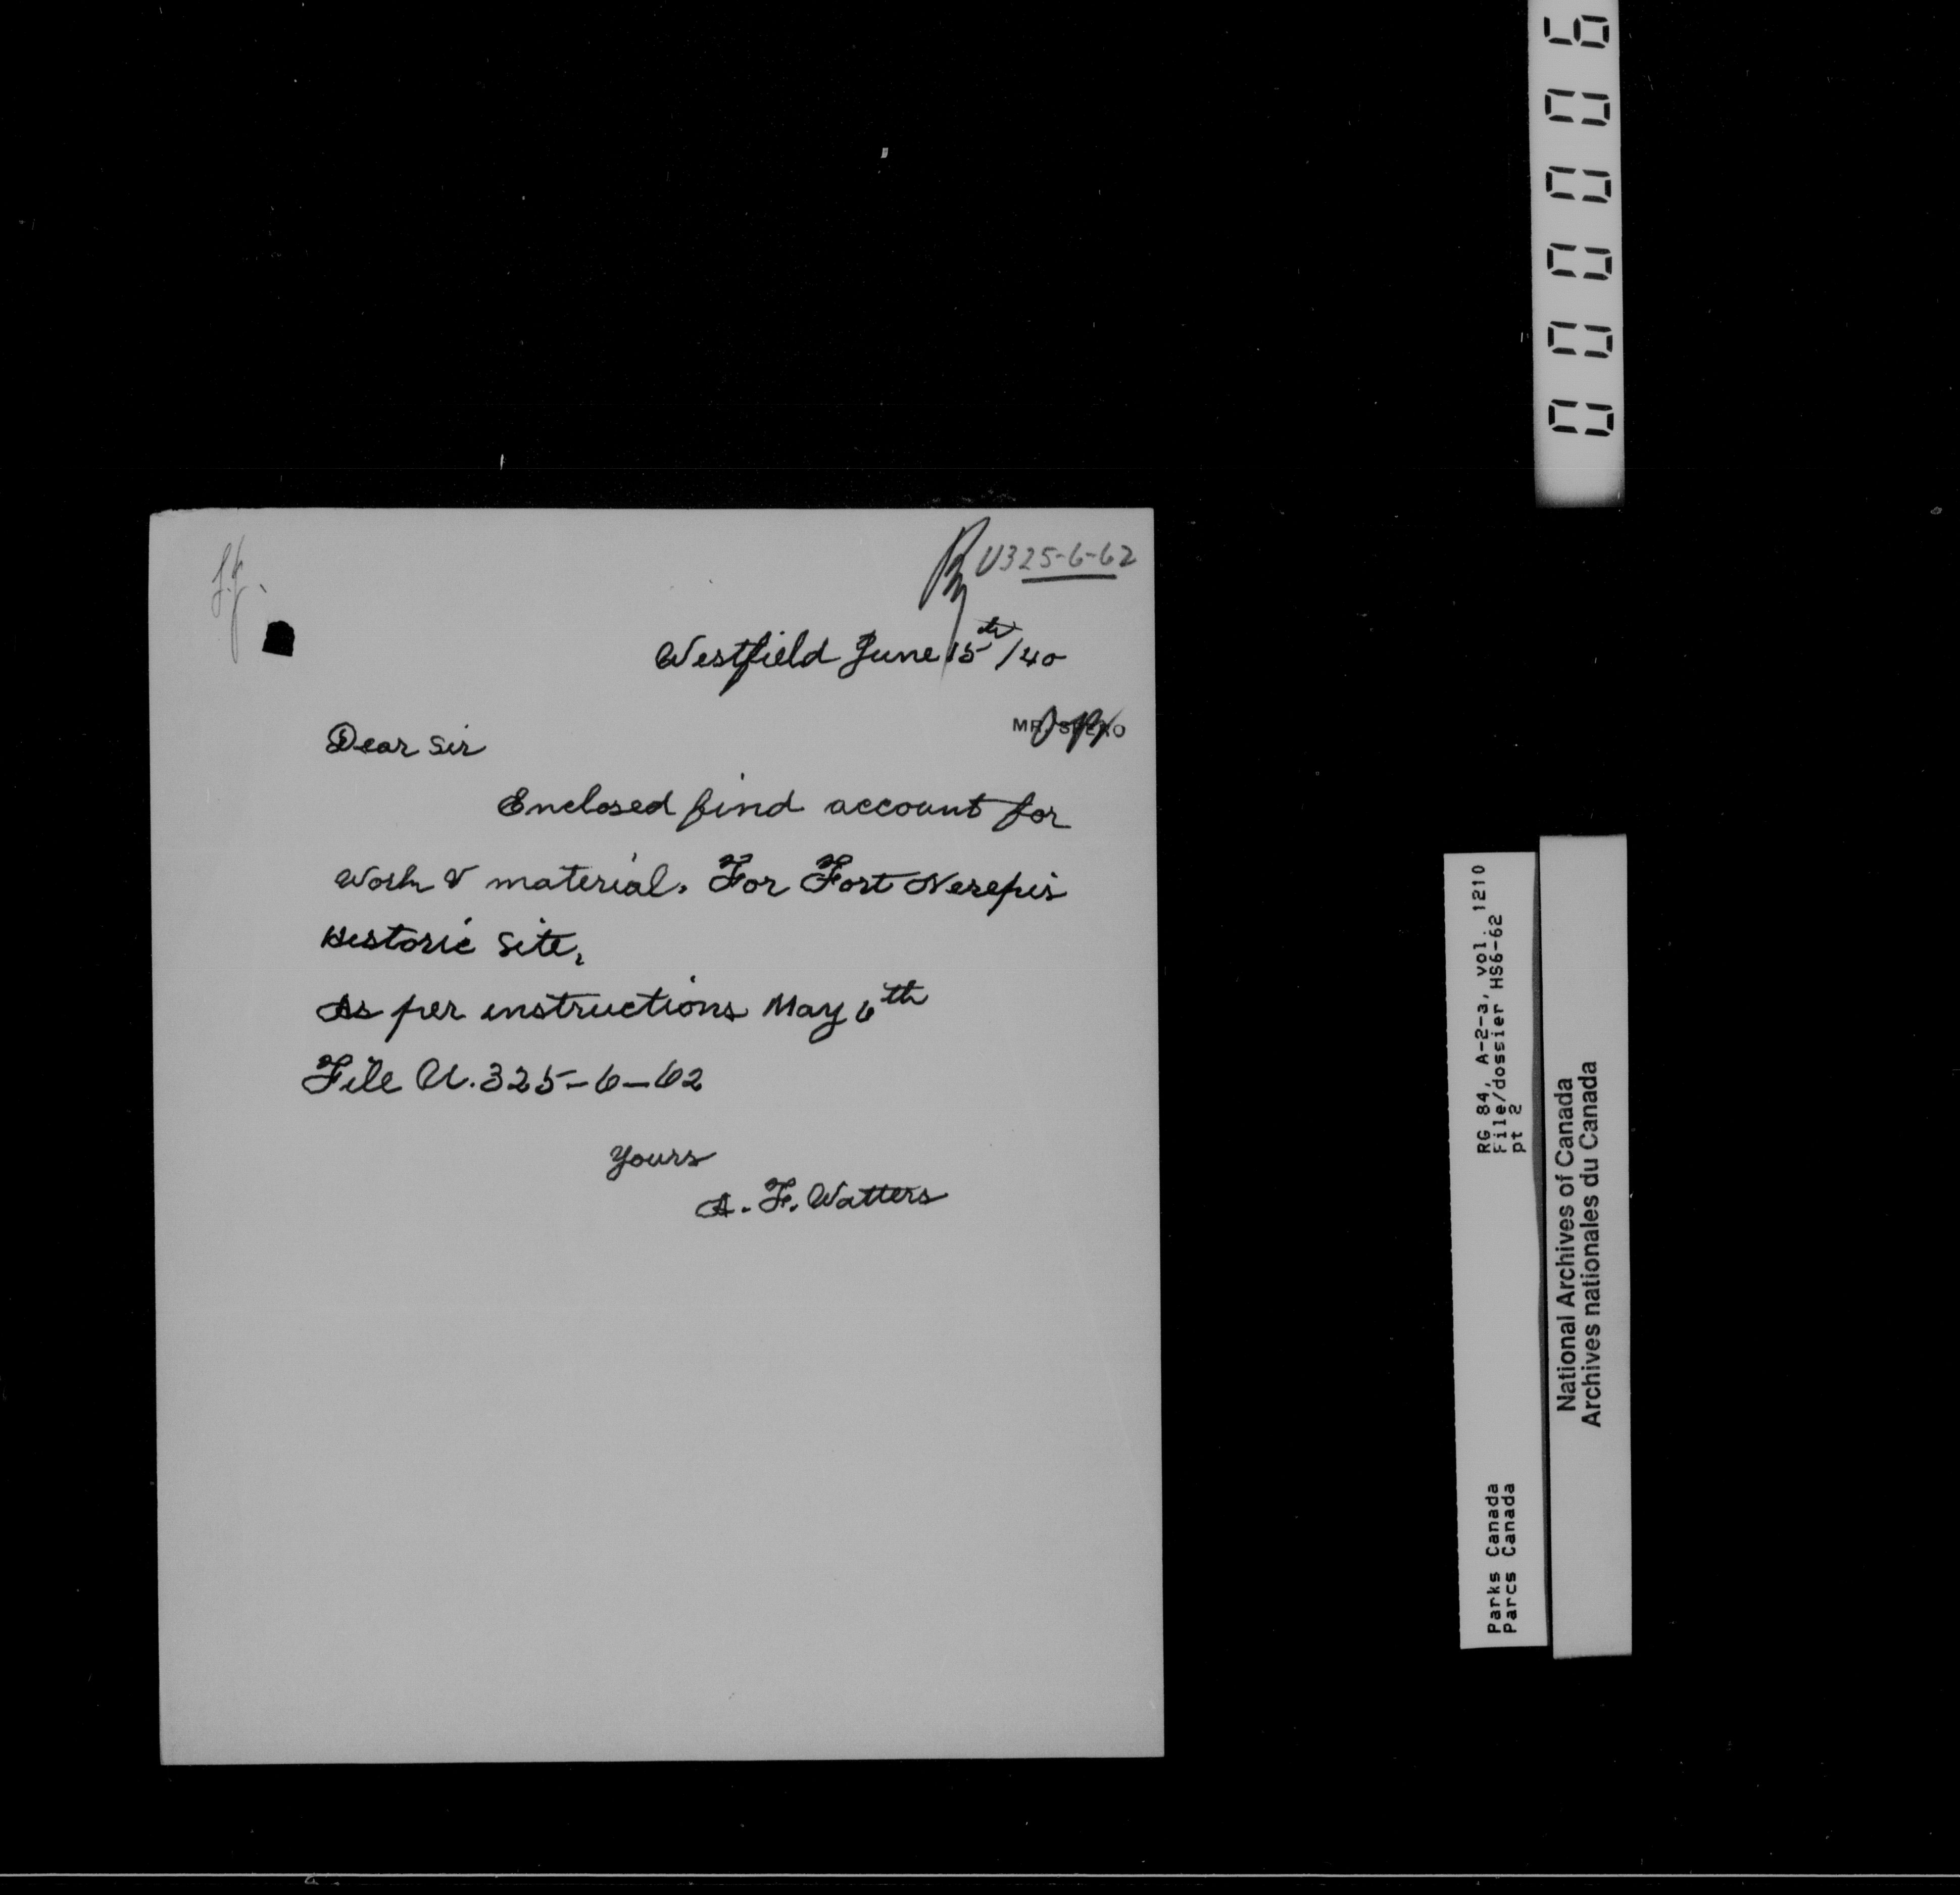 U325-6-62
Westfield June 15th/40
Dear Sir
Enclosed find account for
Work & material. For Fort Nerepis
Historic Site,
As per instructions May 6th
File U.325-6-62
Yours
A. F. Watters
000006
RG 84, A-2-a, vol. 1210
File/dossier HS6-62
pt 2
Parks Canada
Parcs Canada
National Archives of Canada
Archives nationales du Canada